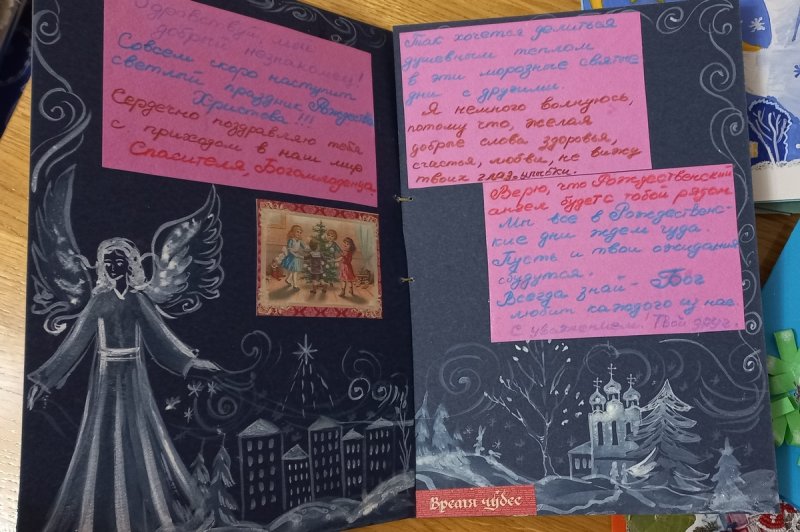 Здравствуй, мой
добрый незнакомец!
Совсем скоро наступит
светлый праздник Рождества
Христова!!!
Сердечно поздравляю тебя
с приходом в наш мир
Спасителя, Богомладенца.
Так хочется делиться
душевным теплом
в эти морозные святые
дни с другими.
Я немного волнуюсь,
потому что, желая
добрые слова здоровья,
счастья, любви, не вижу
твоих глаз, улыбки.
Верю, что Рождественский
ангел будет с тобой рядом.
Мы все в Рождественс-
кие дни ждем чуда.
Пусть и твои ожидания
сбудутся.
Всегда знай - Бог
любит каждого из нас.
С уважением! Твой друг.
Время чудес